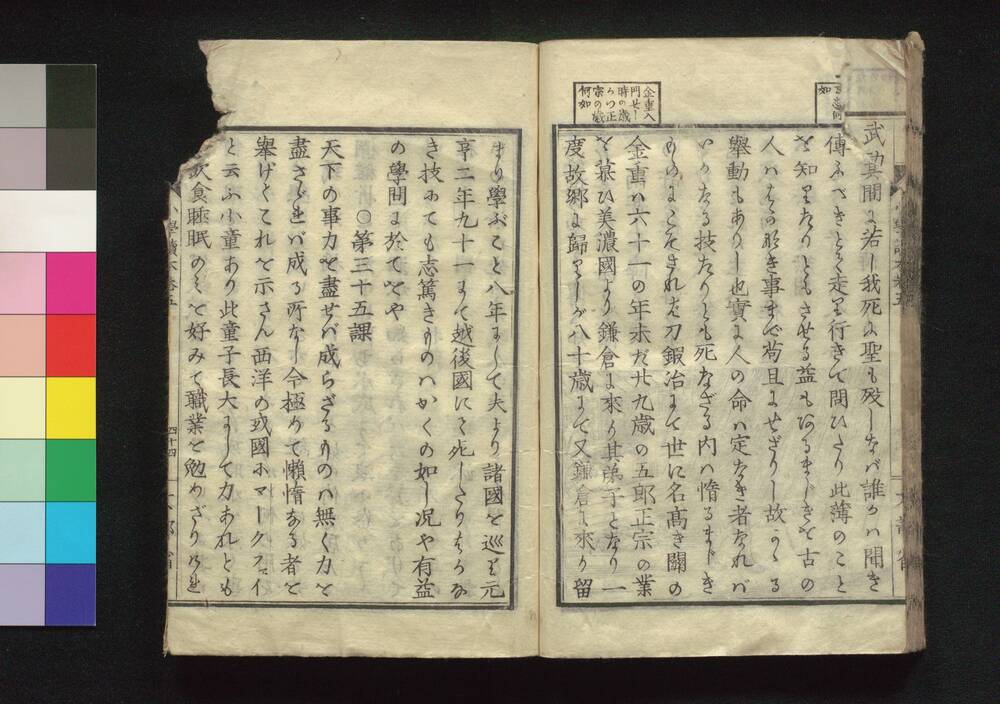 武其間に若し我死に聖も歿しなバ誰かハ聞き
傳ふべきとて走り行きて問ひたり此薄のこと
を知りたりともさせる益もあるまじきを古の
人ハはかなき事まで苟且にせざりし故かゝる
擧動もありし也實に人の命ハ定なき者なれバ
いかなる技たりとも死なざる内ハ惰るまじき
ものにこそされば刀鍛冶にて世に名髙き關の
金重ハ六十一の年未だ廿九歳の五郎正宗の業
を慕ひ美濃國より鎌倉に來り其弟子となり一
度故郷に歸りしが八十歳にて又鎌倉に來り留
金重入
門せし
時の歳
かつ正
宗の歳
何如
何
如
まり學ぶこと八年にして夫より諸國を巡り元
亨二年九十一にて越後國にて死したりはかな
き技にても志篤きものハかくの如し况や有益
の學問に於てをや
○第三十五課
天下の事力を盡せバ成らざるものハ無く力を
盡さゞれバ成る所なし今極めて懶惰なる者を
擧げてこれを示さん西洋の或國にマークスイ
と云ふ小童あり此童子長大にして力あれども
飲食睡眠のみを好みて職業を勉めざりければ
小學讀本卷五
四十四
文部省